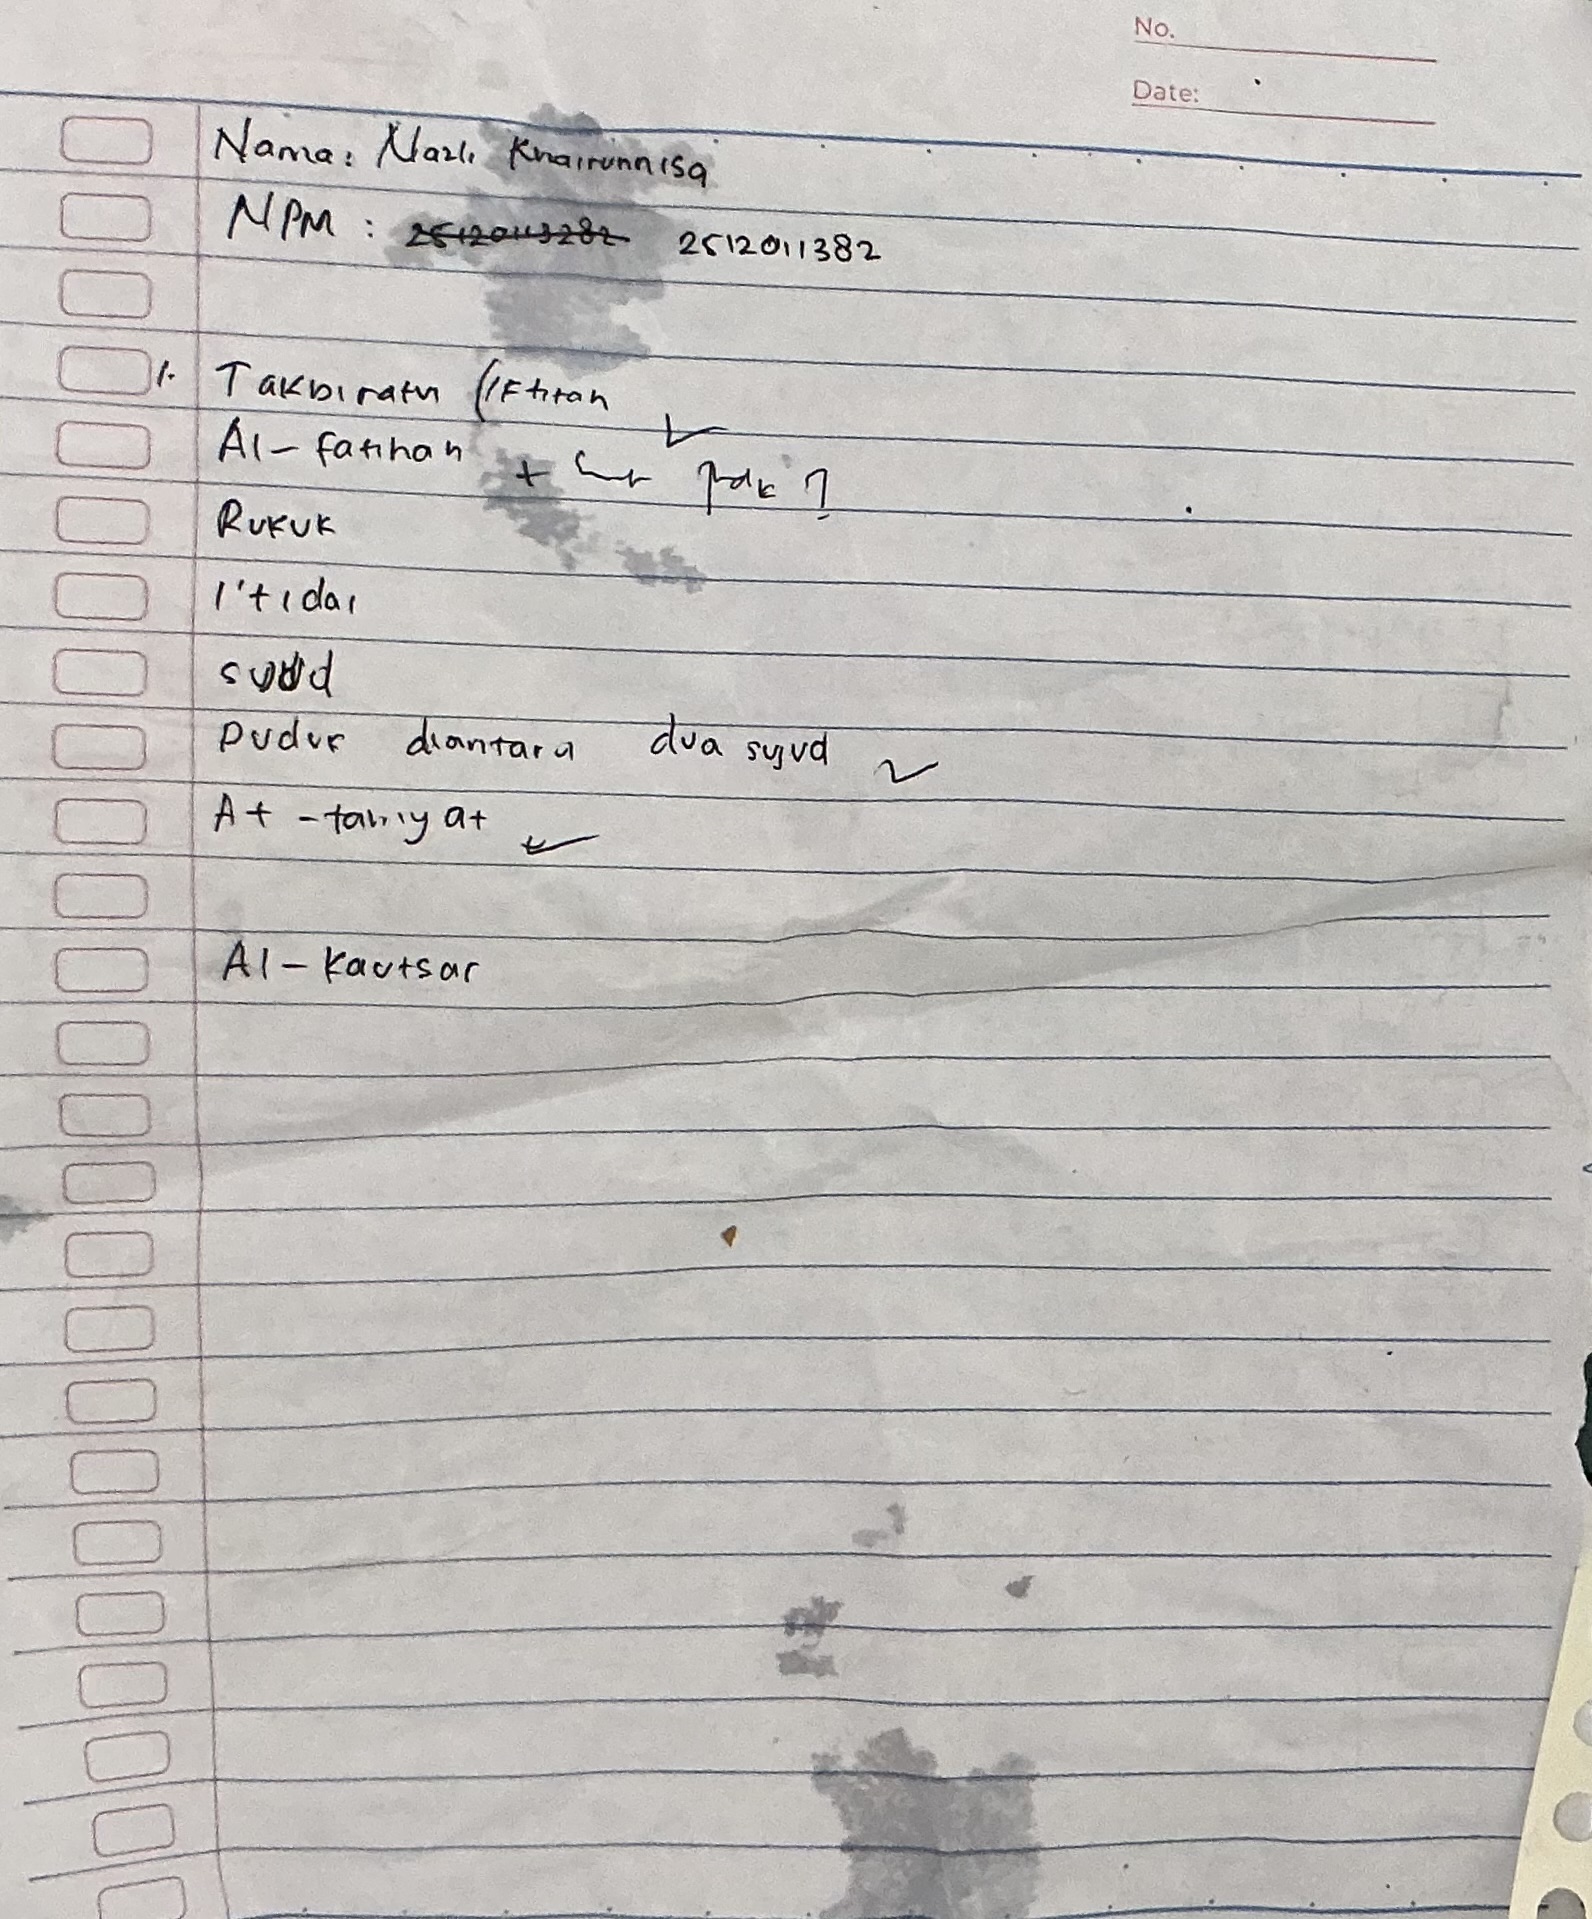 No.
Date:
Nama: Nazli Khairunnisa
NPM : 25120113282 2512011382
1. Takbiratu (Iftitah
Al-fatihah + Surt pdk ?
Rukuk
I'tidal
sujud
Duduk diantara dua sujud
At-tahiyat
Al-Kautsar